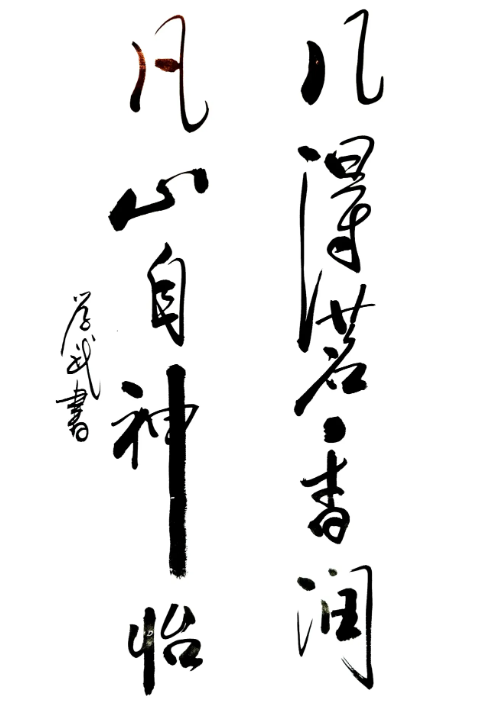 几得茗香润
凡心自神怡
学武書